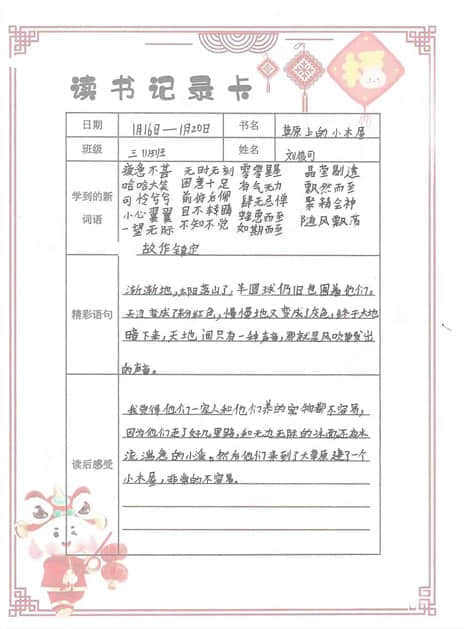 福
读书记录卡
日期 1月16日—1月20日 书名 草原上的小木屋
班级 三 班 姓名
学到的新词语
疲惫不甚 无时无刻 零零星星
哈哈大笑 困意十足 有气无力 飘然而至
可怜兮兮 前俯后仰 肆无忌惮 聚精会神
小心翼翼 目不转睛 随风飘荡
一望无际 不知不觉 如期而至
故作镇定
精彩语句
渐渐地,太阳落山了,半圆球仍旧包围着他们。
天边变成了粉红色,慢慢地又变成了灰色,终于大地
暗下来,天地间只有一种声音,那就是风吹草发出
的声音。
读后感受
我觉得他们一家人和他们养的宠物都不容易,
因为他们走了好几里路,和无边无际的冰面还有水
流湍急的小溪。然后他们来到了大草原建了一个
小木屋,非常的不容易。